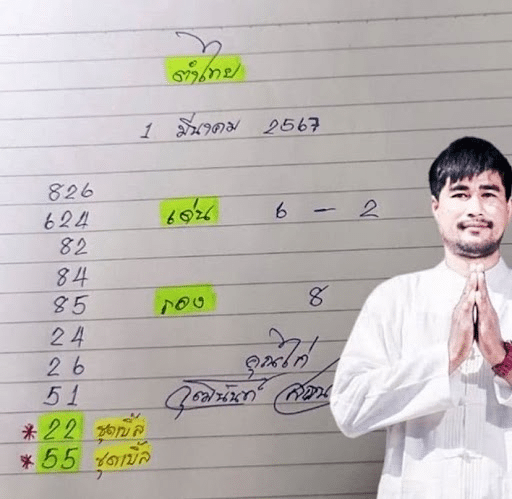 ตำไทย
1 มีนาคม 2567
826
624 เด่น 6 - 2
82
84
85 รอง 8
24
26 คุณไก่
51 วุฒินันท์
* 22 ชุดเบิ้ล
* 55 ชุดเบิ้ล